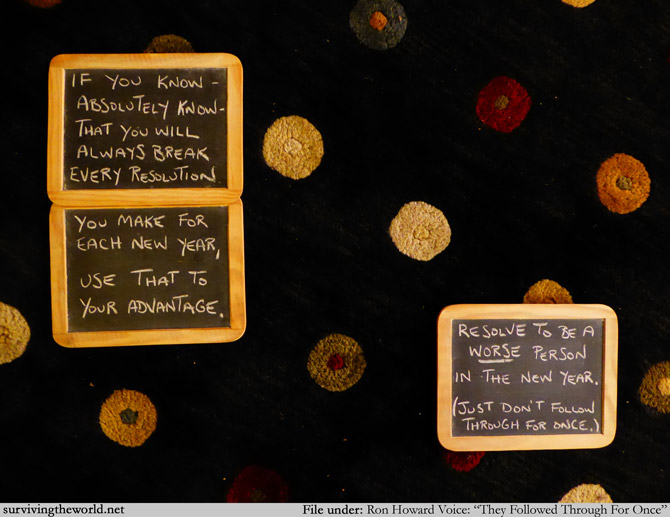 IF YOU KNOW -
ABSOLUTELY KNOW -
THAT YOU WILL
ALWAYS BREAK
EVERY RESOLUTION
YOU MAKE FOR
EACH NEW YEAR,
USE THAT TO
YOUR ADVANTAGE.
RESOLVE TO BE A
WORSE PERSON
IN THE NEW YEAR.
(JUST DON'T FOLLOW
THROUGH FOR ONCE.)
survivingtheworld.net
File under: Ron Howard Voice: “They Followed Through For Once”